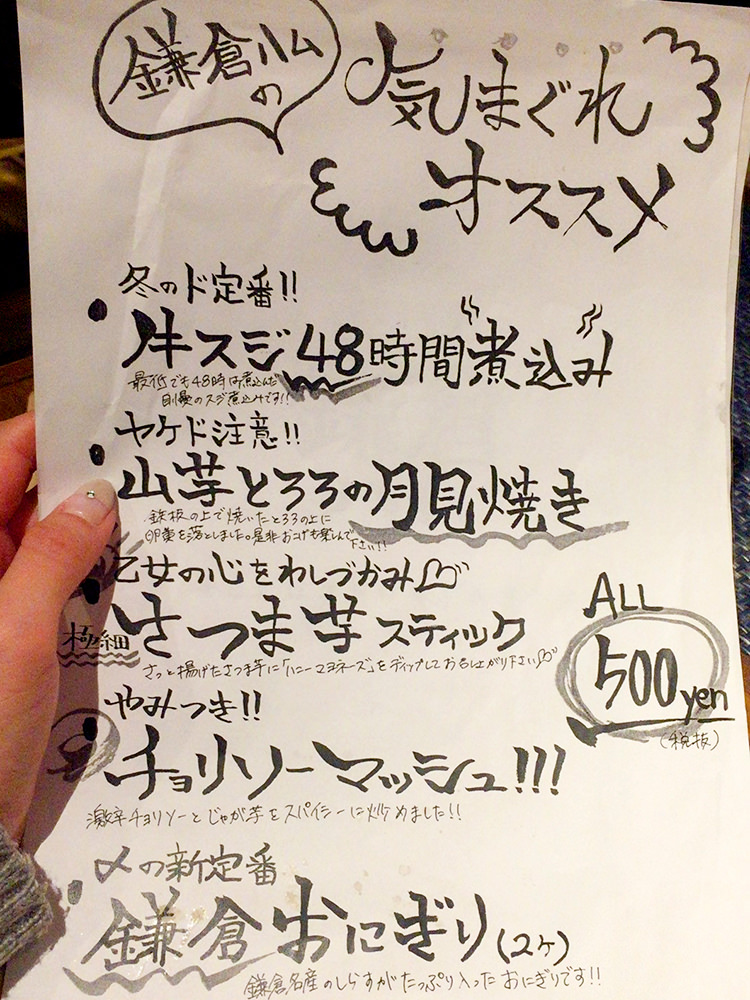 鎌倉ハムの
気まぐれ
オススメ
冬のド定番!!
牛スジ48時間煮込み
最低でも48時は煮込んだ
自慢のスジ煮込みです!!
ヤケド注意!!
山芋とろろの月見焼き
鉄板の上で焼いたとろろの上に
卵黄を落としました。是非おこげも楽しんで
下さい!!
乙女の心をわしづかみ
極細 さつま芋スティック
さっと揚げたさつま芋に「ハニーマヨネーズ」をディップしてお召し上がり下さい
ALL
500yen
(税抜)
やみつき!!
チョリソーマッシュ!!!
激辛チョリソーとじゃが芋をスパイシーに炒めました!!
〆の新定番
鎌倉おにぎり(2ヶ)
鎌倉名産のしらすがたっぷり入ったおにぎりです!!